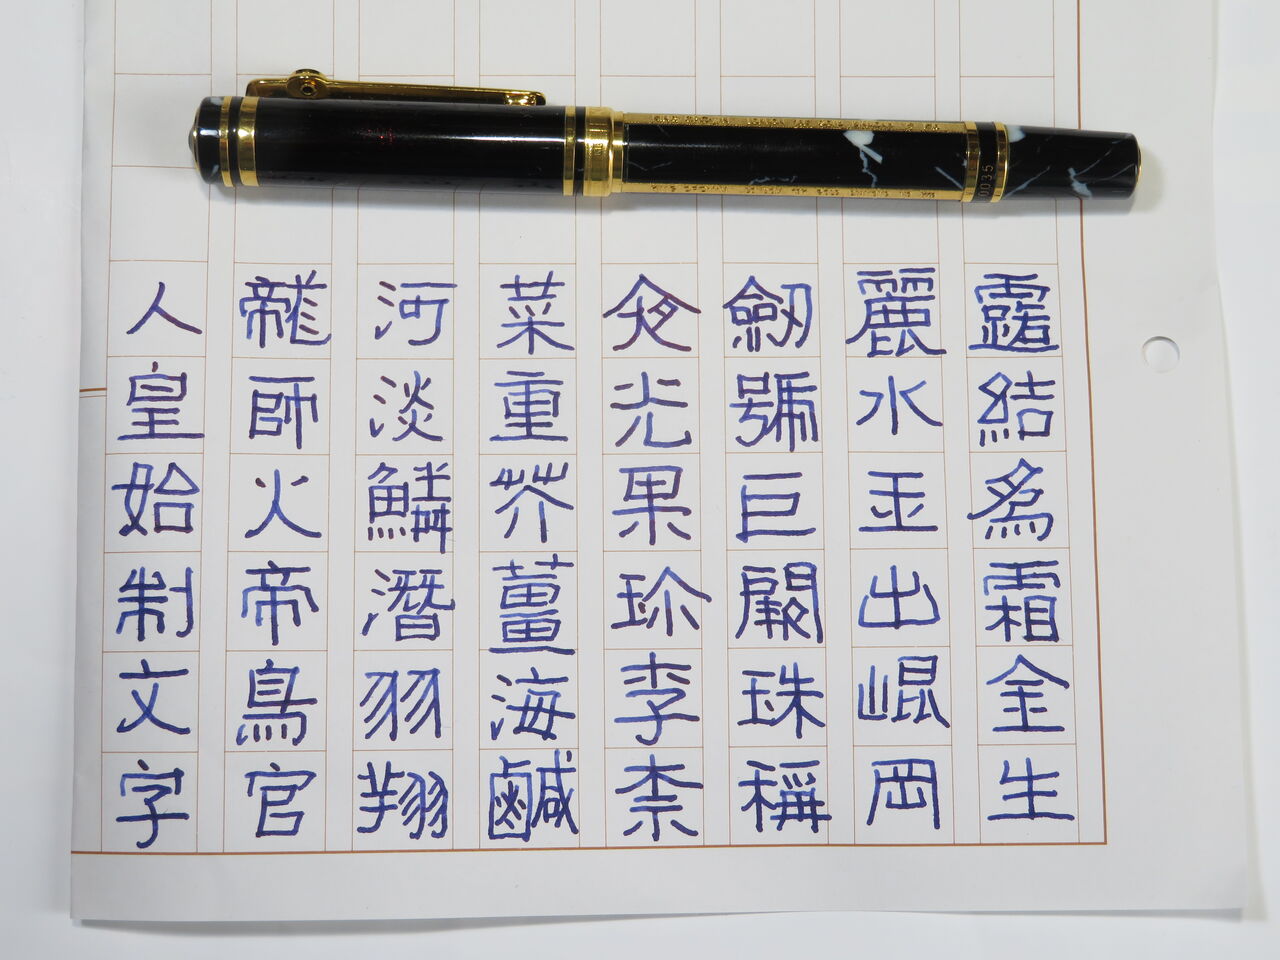 露結為霜金生
麗水玉出崐岡
劒號巨闕珠稱
夜光果珍李柰
菜重芥薑海鹹
河淡鱗潛羽翔
龍師火帝鳥官
人皇始制文字
0035